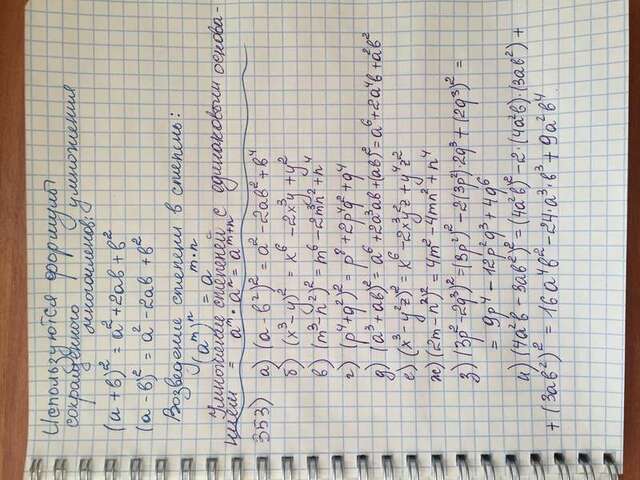 Используются формулы
сокращенного умножения
многочленов:
(a + b)² = a² + 2ab + b²
(a - b)² = a² - 2ab + b²
Возведение степени в степень:
(aᵐ)ⁿ = aᵐ·ⁿ
Умножение степеней с одинаковым основа-
нием = aᵐ · aⁿ = aᵐ⁺ⁿ
353) а) (a - b²)² = a² - 2ab² + b⁴
б) (x³ - y)² = x⁶ - 2x³y + y²
в) (m³ - n²)² = m⁶ - 2m³n² + n⁴
г) (p⁴ + q²)² = p⁸ + 2p⁴q² + q⁴
д) (a³ + ab)² = a⁶ + 2a³ab + (ab)² = a⁶ + 2a⁴b + a²b²
е) (x³ - y²z)² = x⁶ - 2x³y²z + y⁴z²
ж) (2m - n²)² = 4m² - 4mn² + n⁴
з) (3p² - 2q³)² = (3p²)² - 2(3p²)·2q³ + (2q³)² =
= 9p⁴ - 12p²q³ + 4q⁶
и) (4a²b - 3ab²)² = (4a²b)² - 2·(4a²b)·(3ab²) +
+ (3ab²)² = 16a⁴b² - 24·a³·b³ + 9a²b⁴